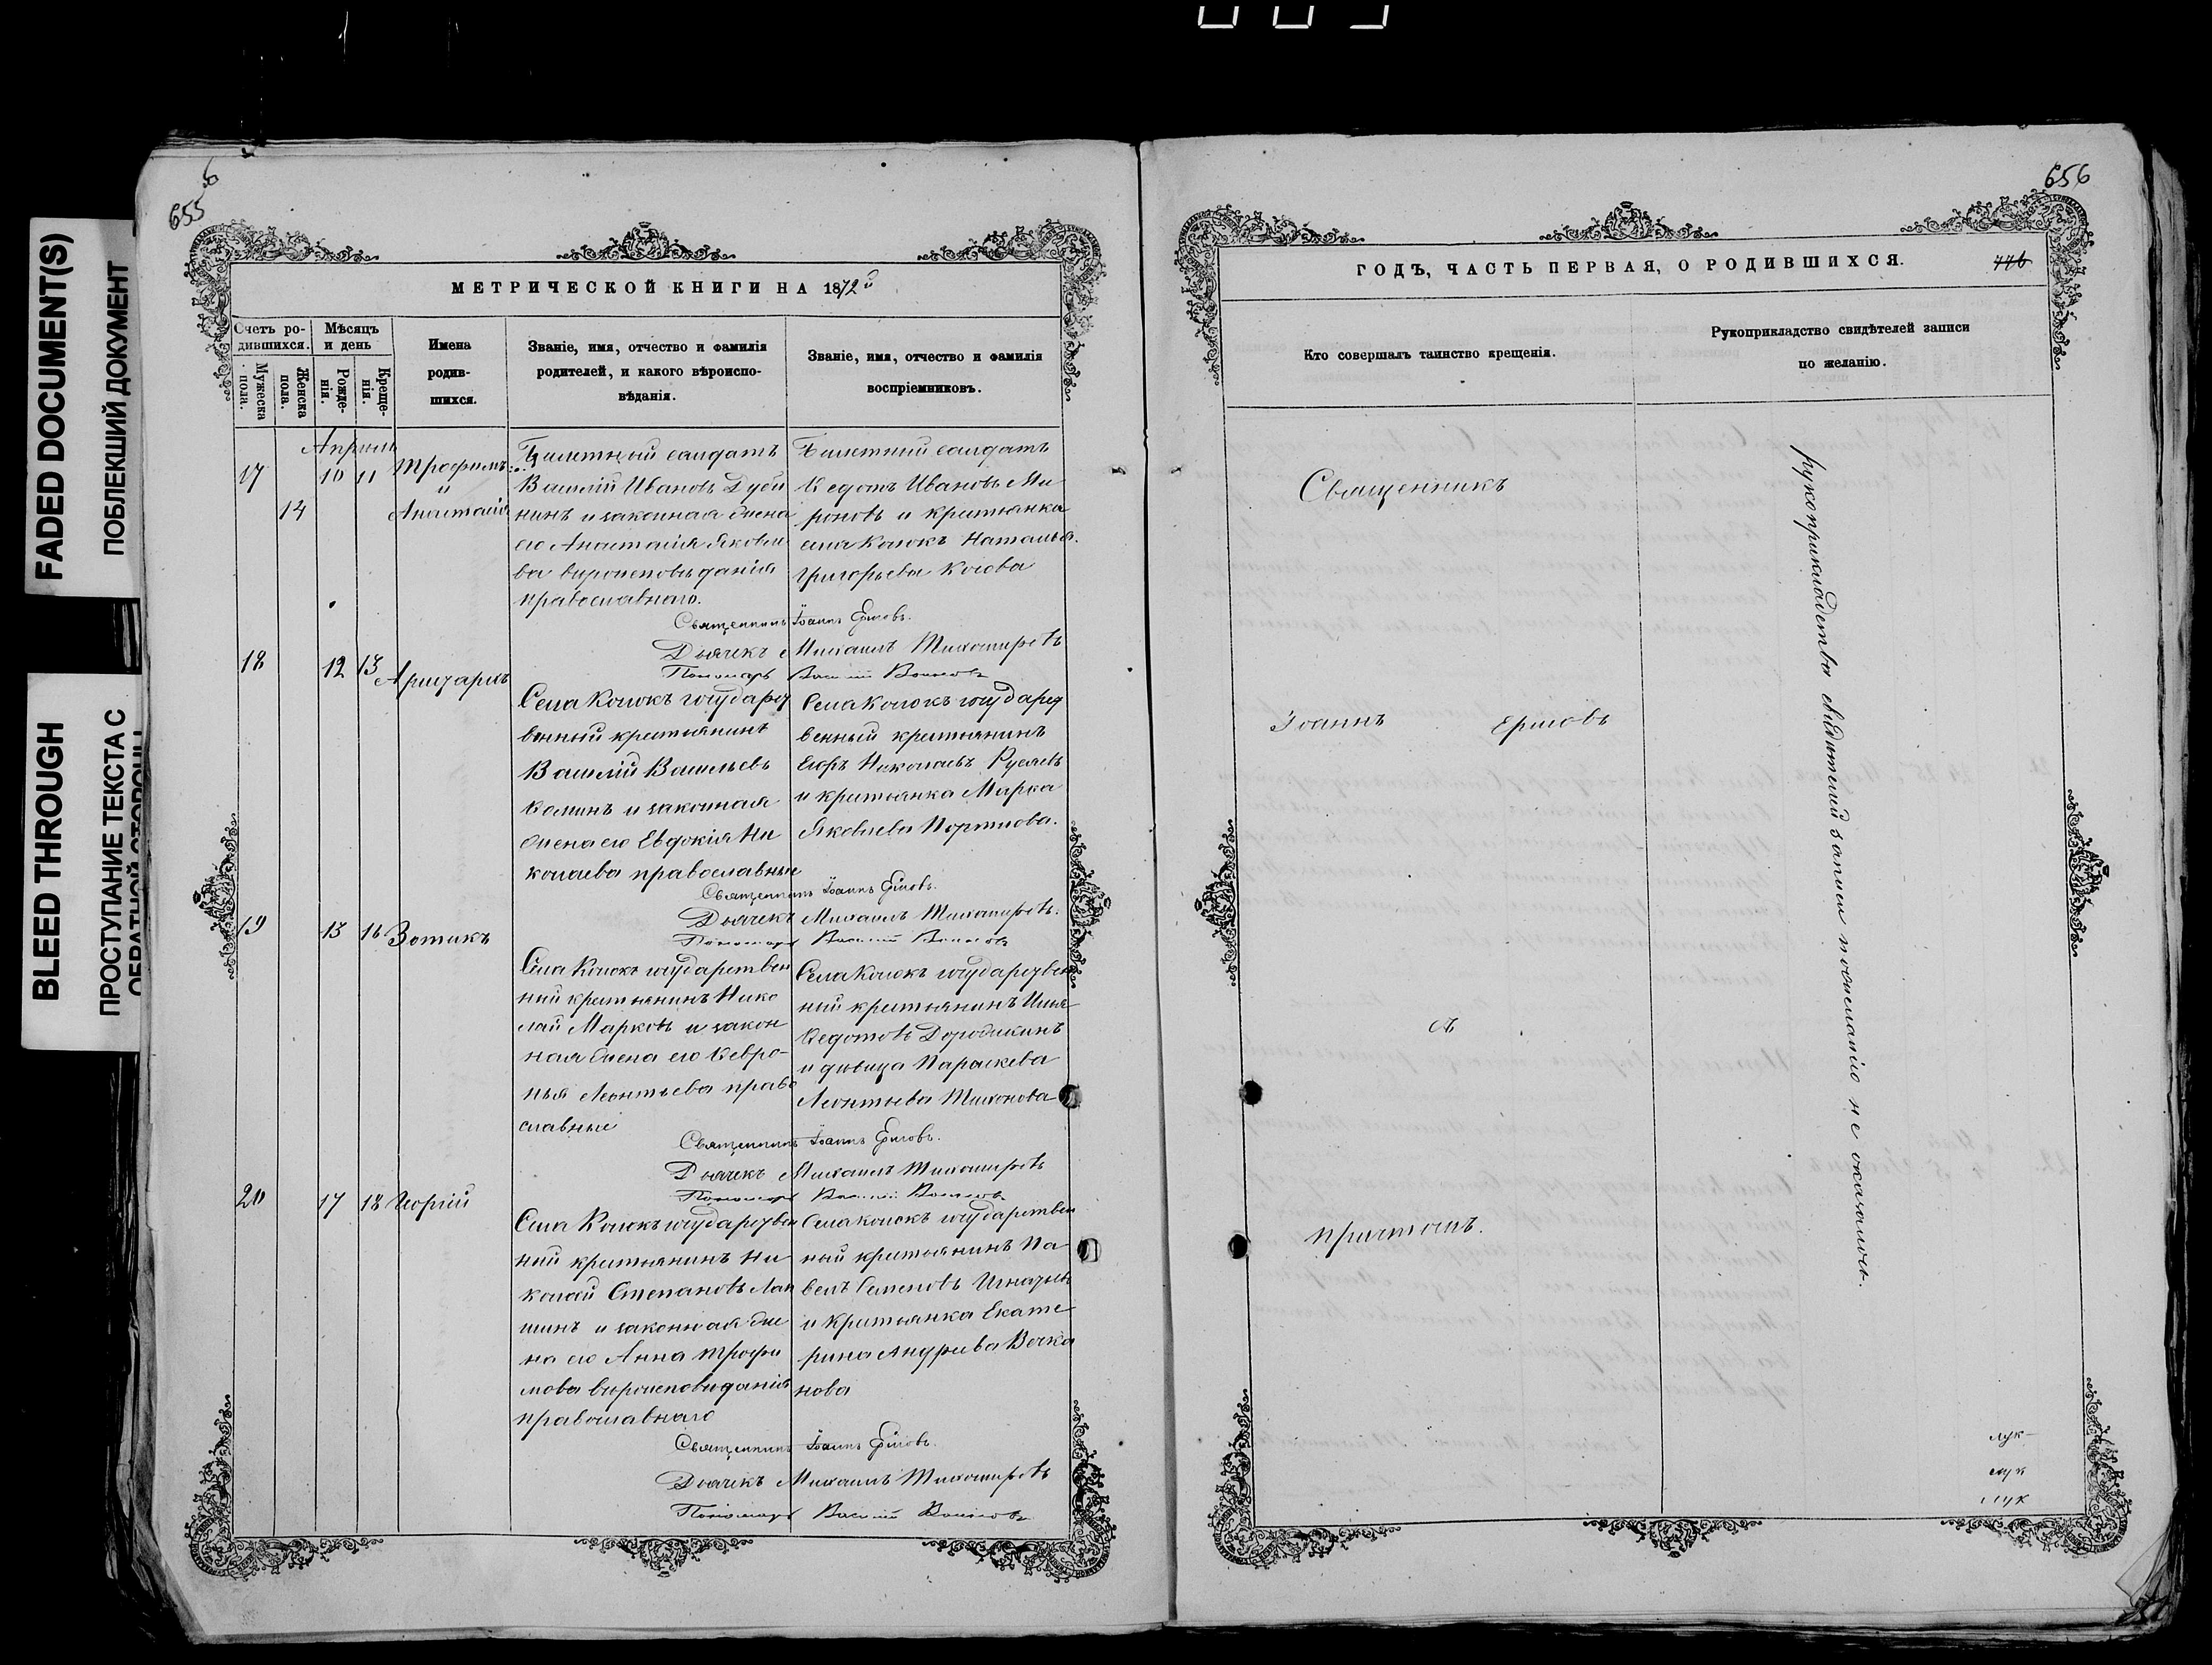 FADED DOCUMENT(S)
ПОБЛЕКШИЙ ДОКУМЕНТ
BLEED THROUGH
ПРОСТУПАНИЕ ТЕКСТА С
ОБРАТНОЙ СТОРОНЫ
6
655
МЕТРИЧЕСКОЙ КНИГИ НА 1872й
Счетъ ро-
дившихся.
Мужеска
пола.
Женска
пола.
Мѣсяцъ
и день
Рожде-
нія.
Креще-
нія.
Имена
родив-
шихся.
Званіе, имя, отчество и фамилія
родителей, и какого вѣроиспо-
вѣданія.
Званіе, имя, отчество и фамилія
воспріемниковъ.
Апрѣль
17
14
10 11
Трофимъ
и
Анастасія
Билетный салдатъ
Василій Ивановъ Дуби
нинъ и законная жена
его Анастасія Яковле
ва вѣроисповѣданія
православнаго.
Билетный салдатъ
Ѳедотъ Ивановъ Ми
роновъ и крестьянка
села Колокъ Наталья
Григорьева
Священникъ Іоаннъ Ершовъ.
Дьячекъ Михаилъ Тихомировъ
Пономарь Василій
18
12 13
Аристархъ
Села Колокъ государст
венный крестьянинъ
Василій Васильевъ
и законная
жена его Евдокія Ни
колаева православные
Села Колокъ государст
венный крестьянинъ
Егоръ Николаевъ Русяевъ
и крестьянка Марѳа
Яковлева Портнова.
Священникъ Іоаннъ Ершовъ.
Дьячекъ Михаилъ Тихомировъ.
Пономарь Василій
19
15 16
Зотикъ
Села Колокъ государствен
ный крестьянинъ Нико
лай Марковъ и закон
ная жена его Ѳевро-
нья Леонтьева право
славные
Села Колокъ государствен
ный крестьянинъ Илья
Ѳедотовъ
и дѣвица Параскева
Леонтьева Тихонова
Священникъ Іоаннъ Ершовъ.
Дьячекъ Михаилъ Тихомировъ
Пономарь Василій
20
17 18
Георгій
Села Колокъ государствен
ный крестьянинъ Ни
колай Степановъ Лап
шинъ и законная же
на его Анна Трофи
мова вѣроисповѣданія
православнаго
Села Колокъ государствен
ный крестьянинъ Па-
велъ Семеновъ Игнатьев
и крестьянка Екате
рина Андреева Вечка
нова
Священникъ Іоаннъ Ершовъ.
Дьячекъ Михаилъ Тихомировъ
Пономарь Василій
656
ГОДЪ, ЧАСТЬ ПЕРВАЯ, О РОДИВШИХСЯ.
Кто совершалъ таинство крещенія.
Рукоприкладство свидѣтелей записи
по желанію.
Священникъ
Іоаннъ Ершовъ
съ
причтомъ.
рукоприкладства свидѣтелей записи по желанію не оказалось.
лук-
лук
лук